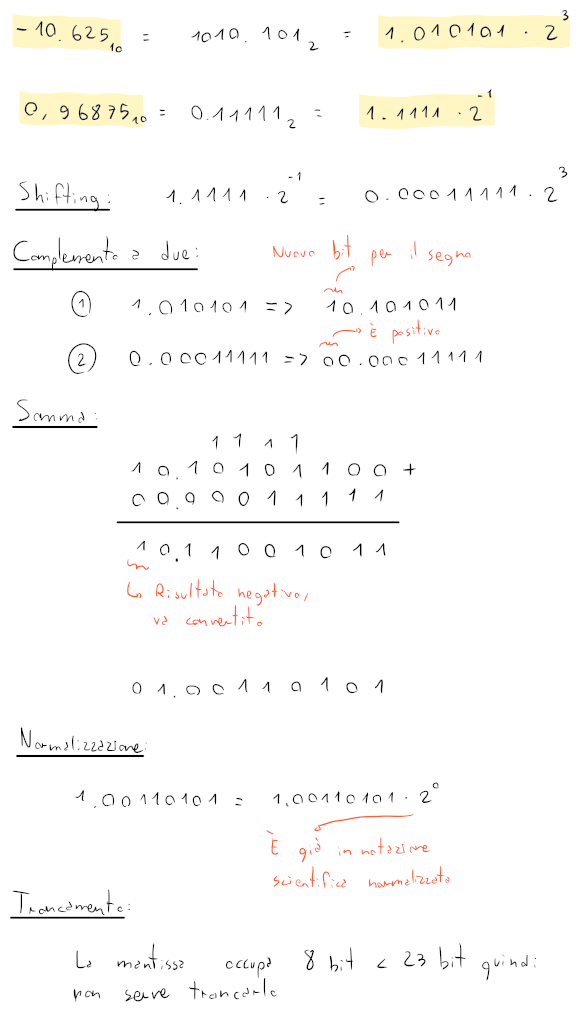 - 10.625₁₀ = 1010.101₂ = 1.010101 · 2³
0,96875₁₀ = 0.11111₂ = 1.1111 · 2⁻¹
Shifting: 1.1111 · 2⁻¹ = 0.00011111 · 2³
Complemento a due: Nuovo bit per il segno
① 1.010101 => 10.101011
È positivo
② 0.00011111 => 00.00011111
Somma:
1 1 1 1
1 0.1 0 1 0 1 1 0 0 +
0 0.0 0 0 1 1 1 1 1
1 0.1 1 0 0 1 0 1 1
Risultato negativo,
va convertito
0 1.0 0 1 1 0 1 0 1
Normalizzazione:
1.00110101 = 1.00110101 · 2⁰
È già in notazione
scientifica normalizzata
Troncamento:
La mantissa occupa 8 bit < 23 bit quindi
non serve troncarla